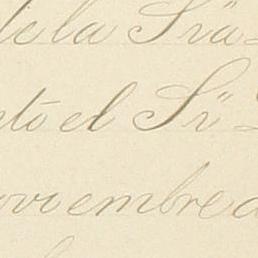 de la Sra
to el Sr
oviembre d